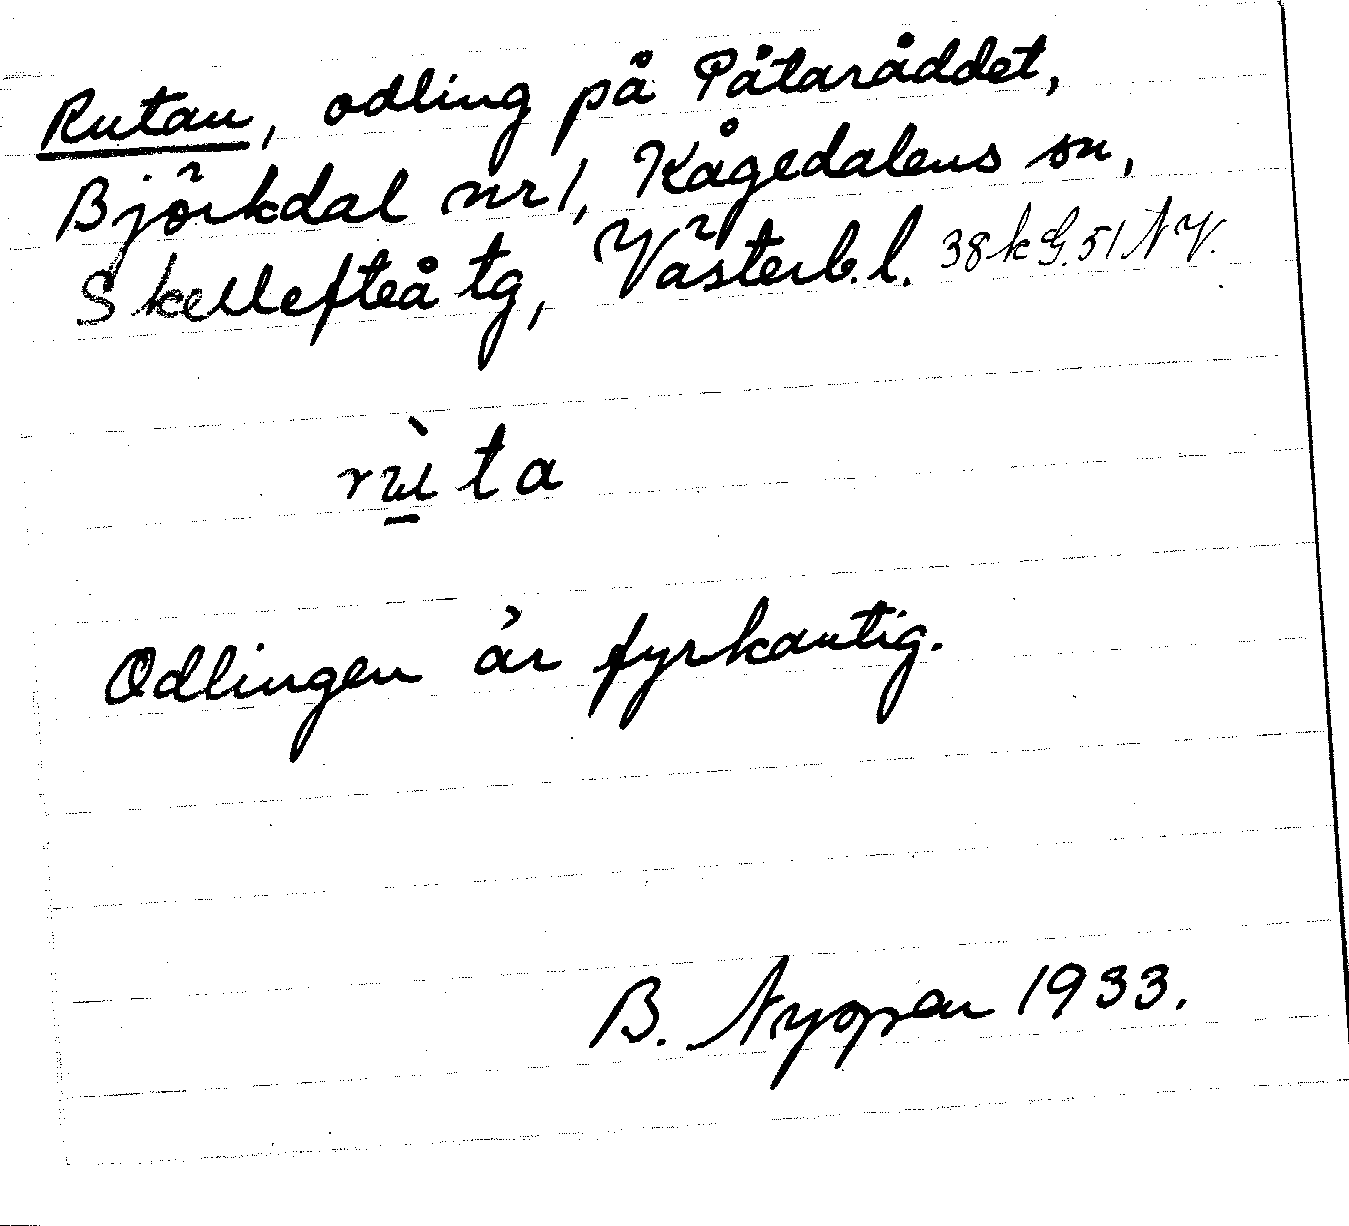 Rutan, odling på Påtaråddet,
Björkdal nr 1, Kågedalens sn,
Skellefteå tg, Västerb. l. 38 k G. 51 N V.
rù̱ta
Odlingen är fyrkantig.
B. 1933.